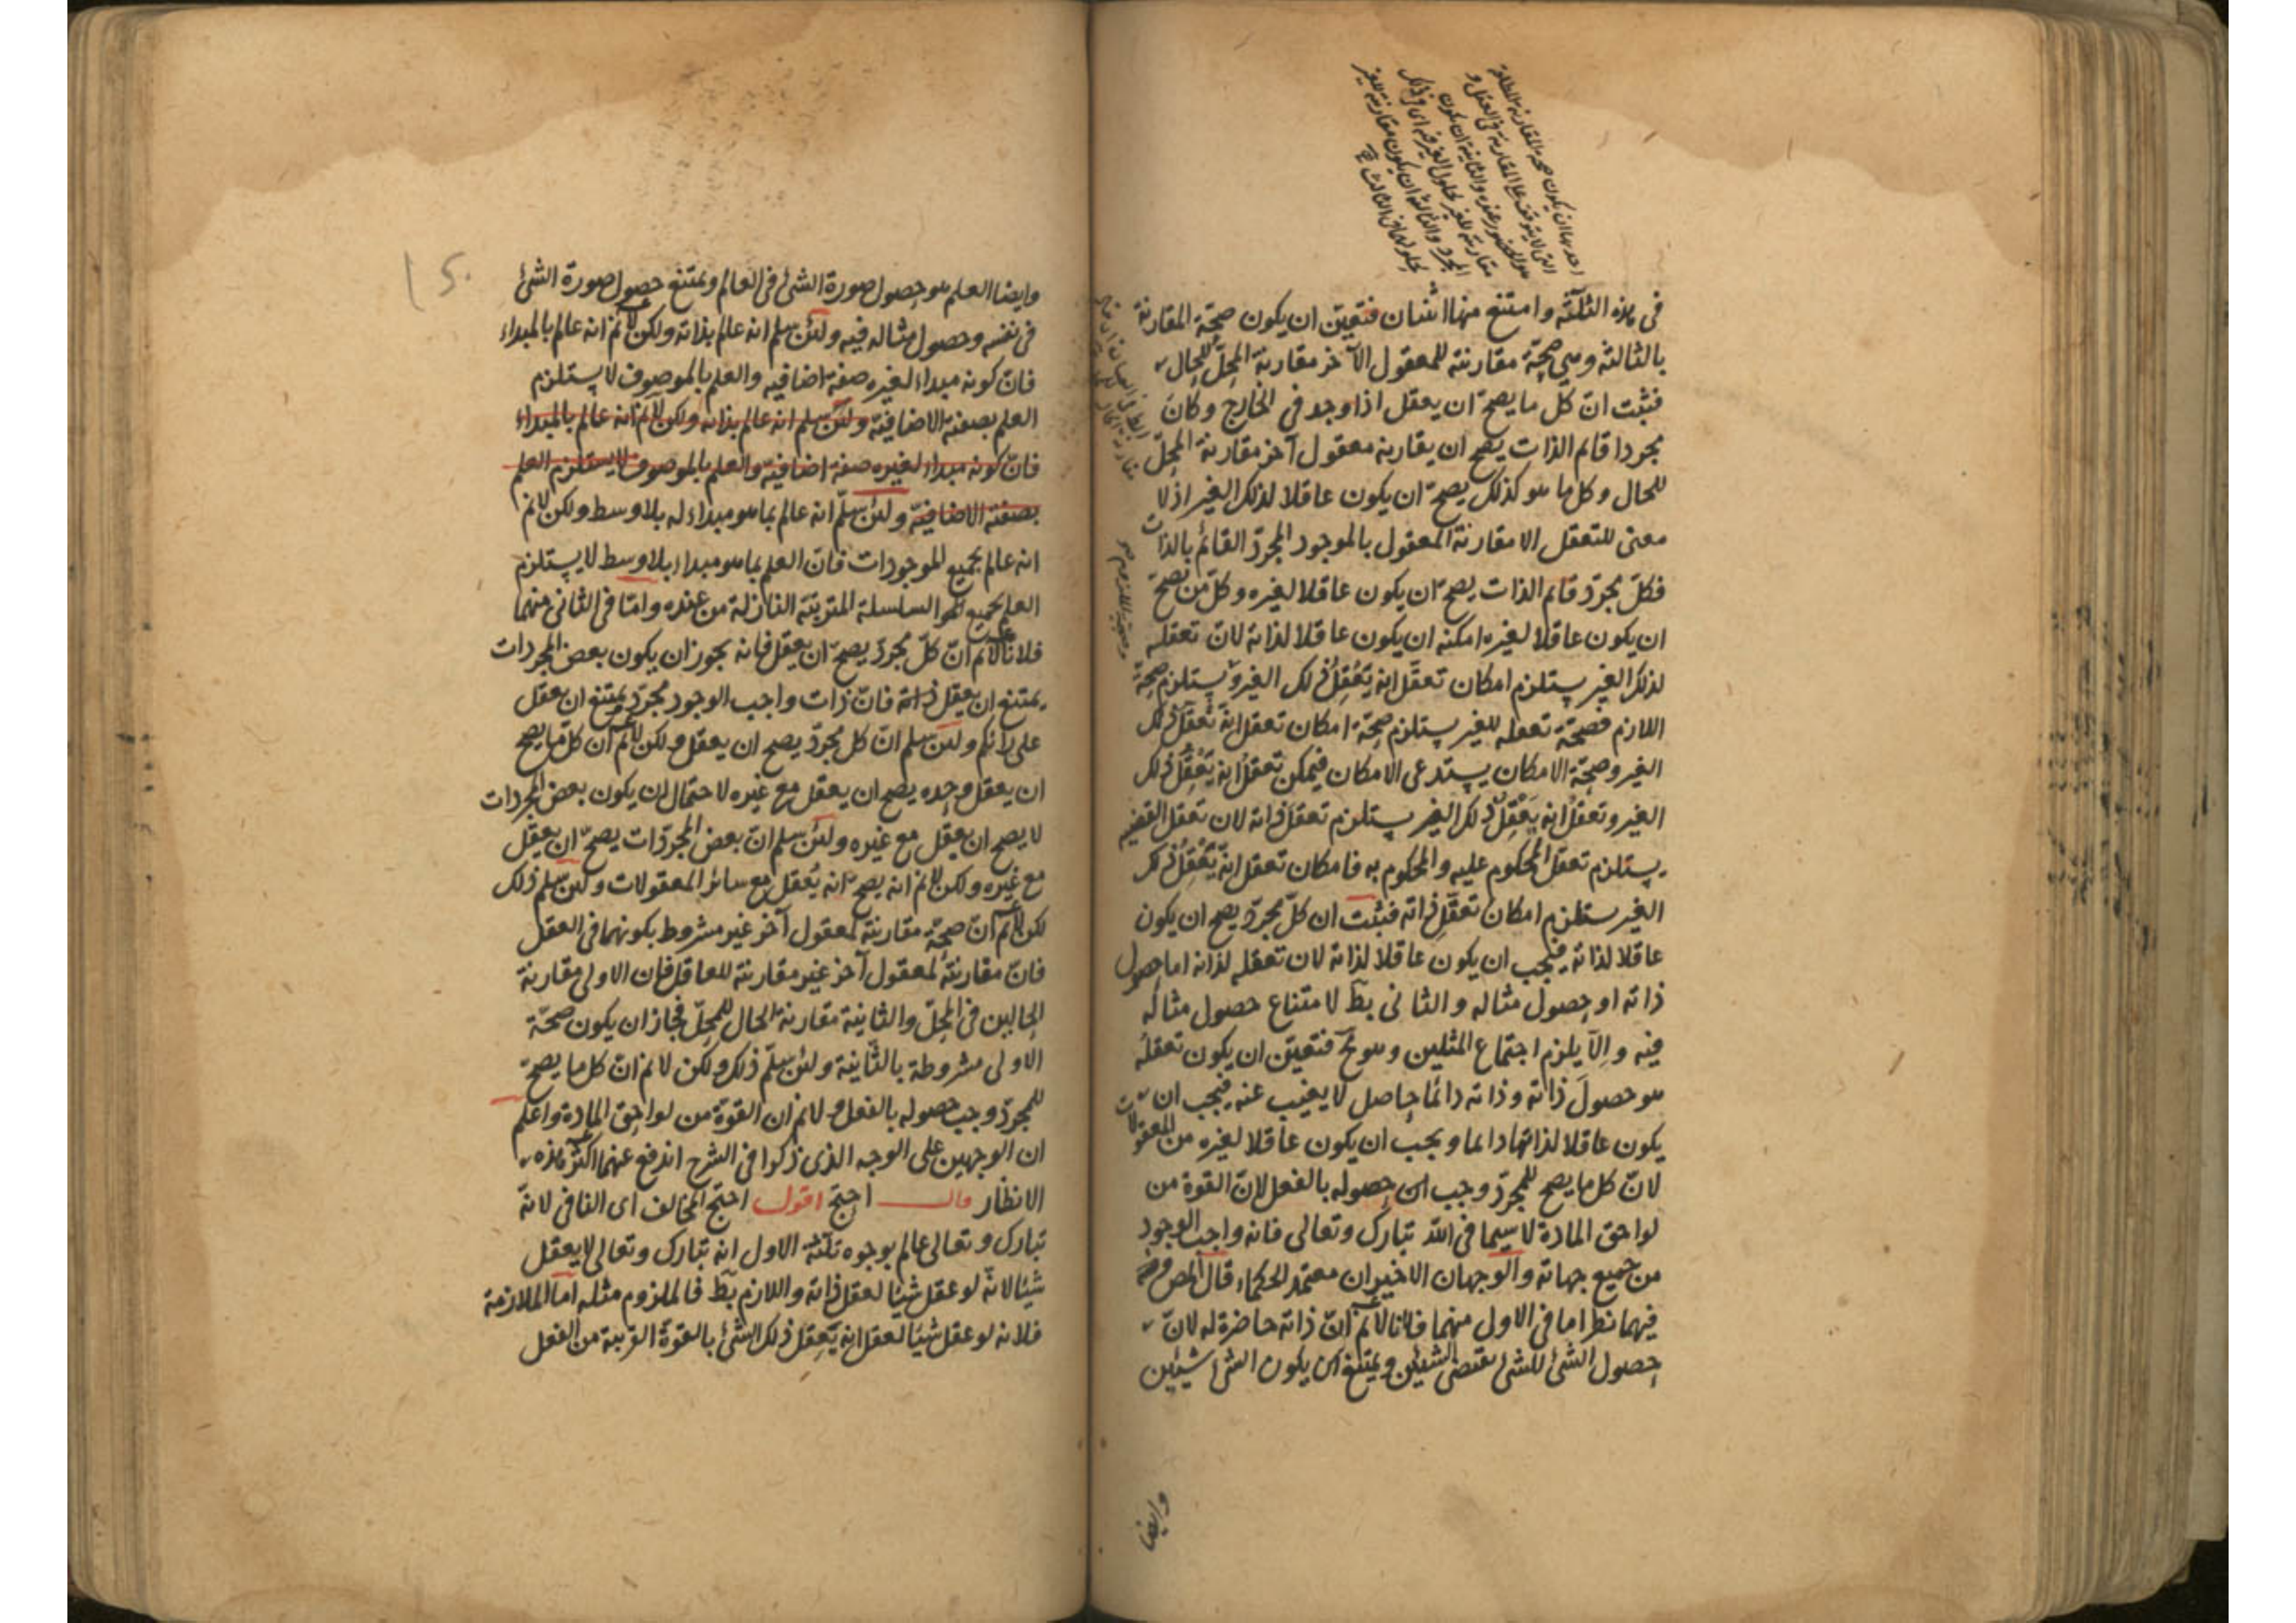 في هذه الثلثة وامتنع منها اثنتان فتعين ان يكون صحة المقارنة
بالثالثة وهي صحة مقارنته للمعقول الآخر مقارنة المحل للحال
فثبت ان كل ما يصح ان يعقل اذا وجد في الخارج وكان
مجردا قائم الذات يصح ان يقارنه معقول آخر مقارنة المحل
للحال وكل ما هو كذلك يصح ان يكون عاقلا لذلك الغير اذ لا
معنى للتعقل الا مقارنة المعقول بالموجود المجرد القائم بالذات
فكل مجرد قائم الذات يصح ان يكون عاقلا لغيره وكل من يصح
ان يكون عاقلا لغيره امكنه ان يكون عاقلا لذاته لان تعقله
لذلك الغير يستلزم امكان تعقل انه يعقل ذلك الغير ويستلزم صحة
اللازم فصحة تعقله للغير يستلزم صحة امكان تعقل انه تعقل ذلك
الغير وصحة الامكان يستدعى الامكان فيمكن تعقل انه يعقل ذلك
الغير وتعقل انه يعقل ذلك الغير يستلزم تعقل ذاته لان تعقل القضية
يستلزم تعقل المحكوم عليه والمحكوم به فامكان تعقل انه يعقل ذلك
الغير يستلزم امكان تعقل ذاته فثبت ان كل مجرد يصح ان يكون
عاقلا لذاته فيجب ان يكون عاقلا لذاته لان تعقله لذاته اما حصول
ذاته او حصول مثاله والثاني بط لامتناع حصول مثاله
فيه والا يلزم اجتماع المثلين وهو مح فتعين ان يكون تعقله
هو حصول ذاته وذاته دائما حاصل لا يغيب عنه فيجب ان
يكون عاقلا لذاتها دائما ويجب ان يكون عاقلا لغيره من المعقولات
لان كل ما يصح للمجرد وجب ان حصوله بالفعل لان القوة من
لواحق المادة لا سيما في الله تبارك وتعالى فانه واجب الوجود
من جميع جهاته والوجهان الاخيران معتمد الحكماء قال المص
فيهما نظر اما في الاول منهما فلانا لانم ان ذاته حاضرة له لان
حصول الشئ للشئ يقتضى الشيئين ويمتنع ان يكون الشئ شيئين
وايضا
وايضا العلم هو حصول صورة الشئ في العالم ويمتنع حصول صورة الشئ
في نفسه وحصول مثاله فيه ولئن سلم انه عالم بذاته ولكن لانم انه عالم بالمبداء
فان كونه مبداء لغيره صفة اضافية والعلم بالموصوف لا يستلزم
العلم بصفته الاضافية ولئن سلم انه عالم بذاته ولكن لانم انه عالم بالمبداء
فان كونه مبداء لغيره صفة اضافية والعلم بالموصوف لا يستلزم العلم
بصفته الاضافية ولئن سلم انه عالم بما هو مبداء له بلا وسط ولكن لانم
انه عالم بجميع الموجودات فان العلم بما هو مبداء بلا وسط لا يستلزم
العلم بجميع السلسلة المترتبة النازلة من عنده واما في الثاني منهما
فلانا لانم ان كل مجرد يصح ان يعقل فانه يجوز ان يكون بعض المجردات
يمتنع ان يعقل ذاته فان ذات واجب الوجود مجرد يمتنع ان يعقل
على رأيكم ولئن سلم ان كل مجرد يصح ان يعقل ولكن لانم ان كل ما يصح
ان يعقل وحده يصح ان يعقل مع غيره لاحتمال ان يكون بعض المجردات
لا يصح ان يعقل مع غيره ولئن سلم ان بعض المجردات يصح ان يعقل
مع غيره ولكن لانم انه يصح انه يعقل مع سائر المعقولات ولئن سلم ذلك
لكن لانم ان صحة مقارنته لمعقول آخر غير مشروط بكونهما في العقل
فان مقارنته لمعقول آخر غير مقارنته للعاقل فان الاولى مقارنة
الحالين في المحل والثانية مقارنة الحال للمحل فجاز ان يكون صحة
الاولى مشروطة بالثانية ولئن سلم ذلك ولكن لانم ان كل ما يصح
للمجرد وجب حصوله بالفعل ولانم ان القوة من لواحق المادة واعلم
ان الوجهين على الوجه الذى ذكرا في الشرح اندفع عنهما اكثر هذه
الانظار قال احتج اقول احتج المخالف اى النافى لانه
تبارك وتعالى عالم بوجوه ثلثة الاول انه تبارك وتعالى لا يعقل
شيئا لانه لو عقل شيئا لعقل ذاته واللازم بط فالملزوم مثله اما الملازمة
فلانه لو عقل شيئا لعقل انه يعقل ذلك الشئ بالقوة القريبة من الفعل